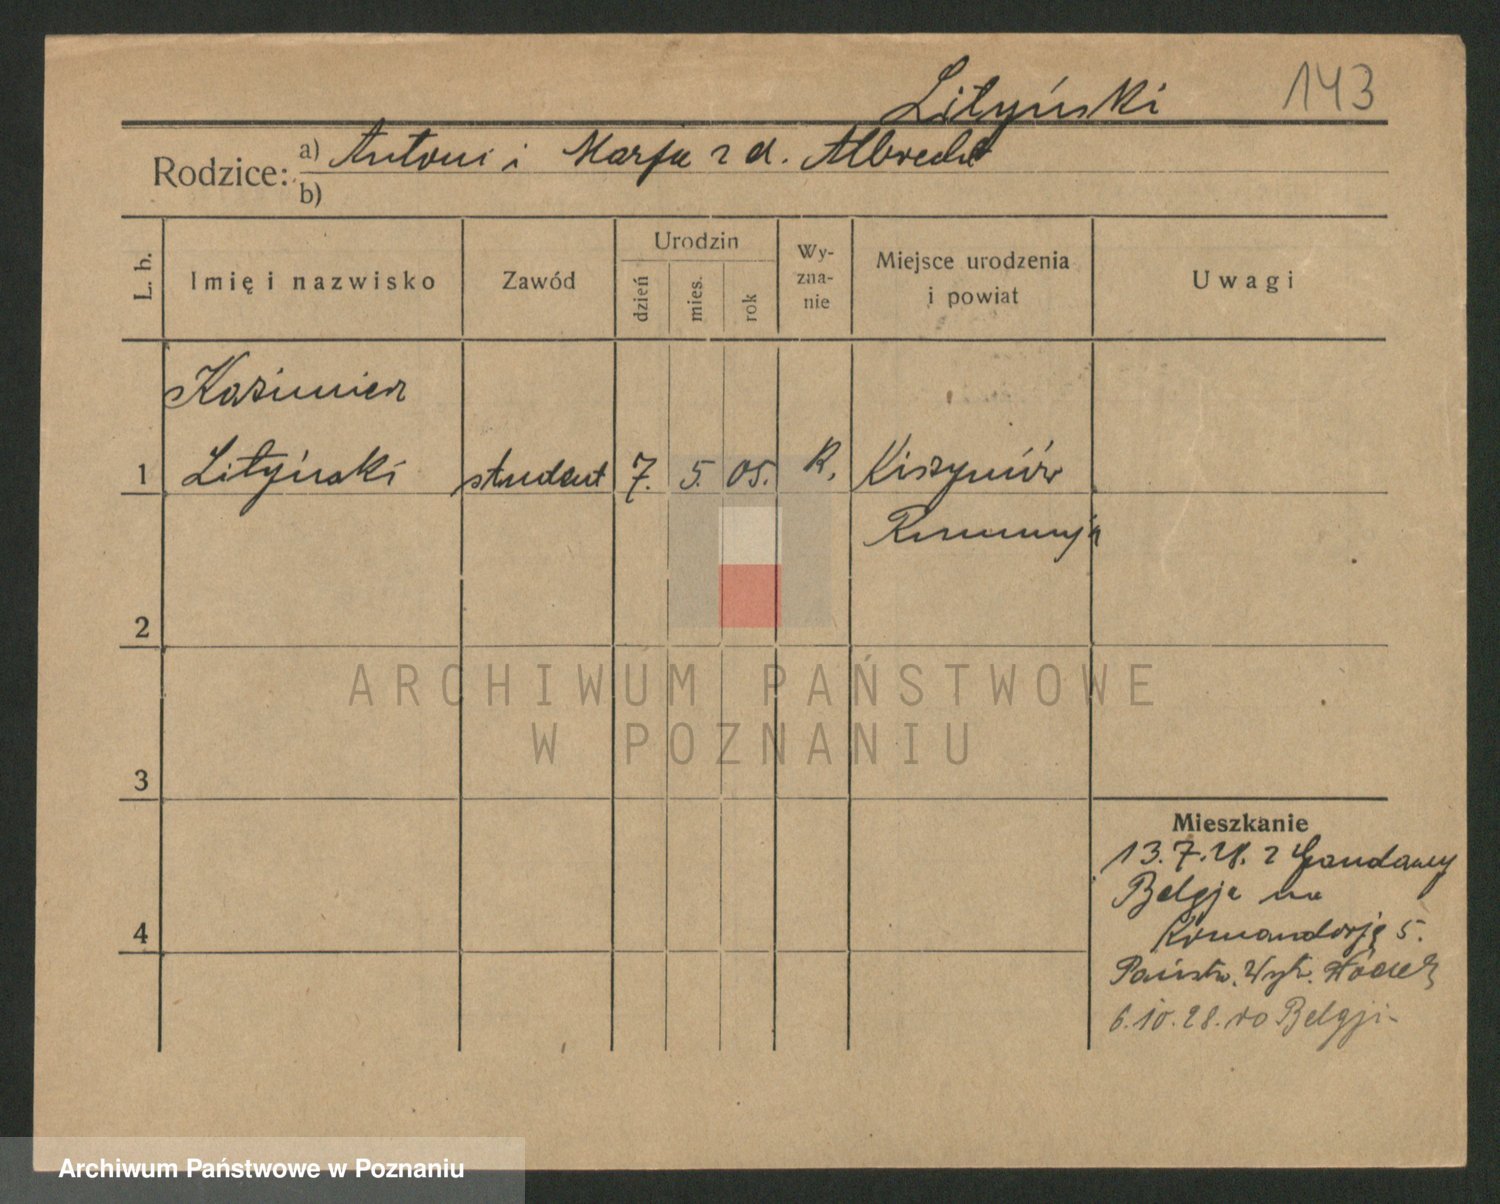 Lityński 143
Rodzice: a) Antoni i Marja z d. Albrecht
b)
L. b. Imię i nazwisko Zawód Urodzin dzień mies. rok Wyznanie Miejsce urodzenia i powiat Uwagi
Kazimierz
1 Lityński student 7. 5. 05. R. Kiszyniów
Rumunja
2
ARCHIWUM PAŃSTWOWE
W POZNANIU
3
Mieszkanie
13.7.28. z Gandawy
Belgja na
4 Komandorję 5.
Państw.
6.10.28. do Belgji
Archiwum Państwowe w Poznaniu